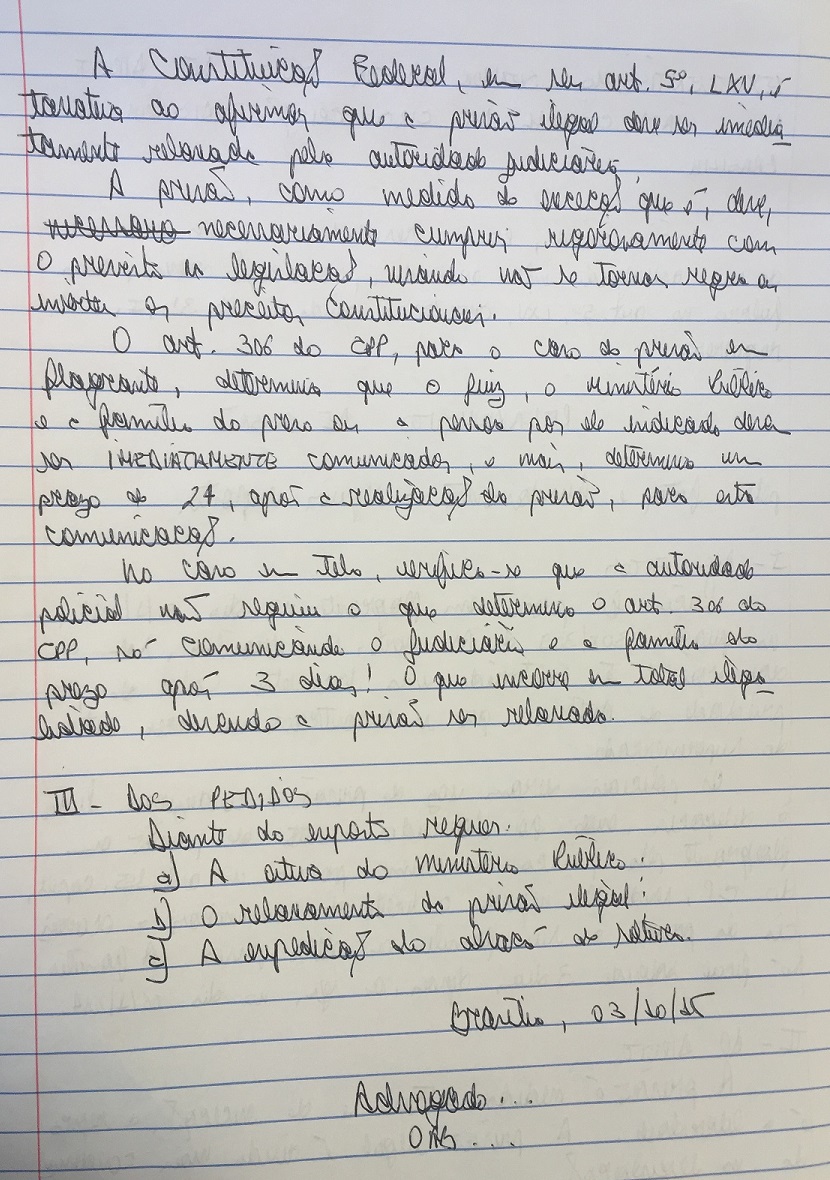 A Constituição Federal, em seu art. 5º, LXV, é
taxativa ao afirmar que a prisão ilegal deve ser imedia
tamente relaxada pela autoridade judiciária.
A prisão, como medida de exceção que é, deve,
necessariamente cumprir rigorosamente com
o previsto na legislação, visando não se tornar regra ou
os preceitos constitucionais.
O art. 306 do CPP, para o caso de prisão em
flagrante, determina que o juiz, o Ministério Público
e a família do preso ou a pessoa por ele indicada deva
ser IMEDIATAMENTE comunicados, e mais, determina um
prazo de 24, após a realização da prisão, para esta
comunicação.
No caso em tela, verifica-se que a autoridade
policial não seguiu o que determina o art. 306 do
CPP, só comunicando o Judiciário e a família do
prazo após 3 dias! O que incorre em total ilega
lidade, devendo a prisão ser relaxada.
III - DOS PEDIDOS
Diante do exposto requer:
a) A oitiva do Ministério Público;
b) O relaxamento da prisão ilegal;
c) A expedição do alvará de soltura.
Brasília, 03/10/25
Advogado...
OAB ...